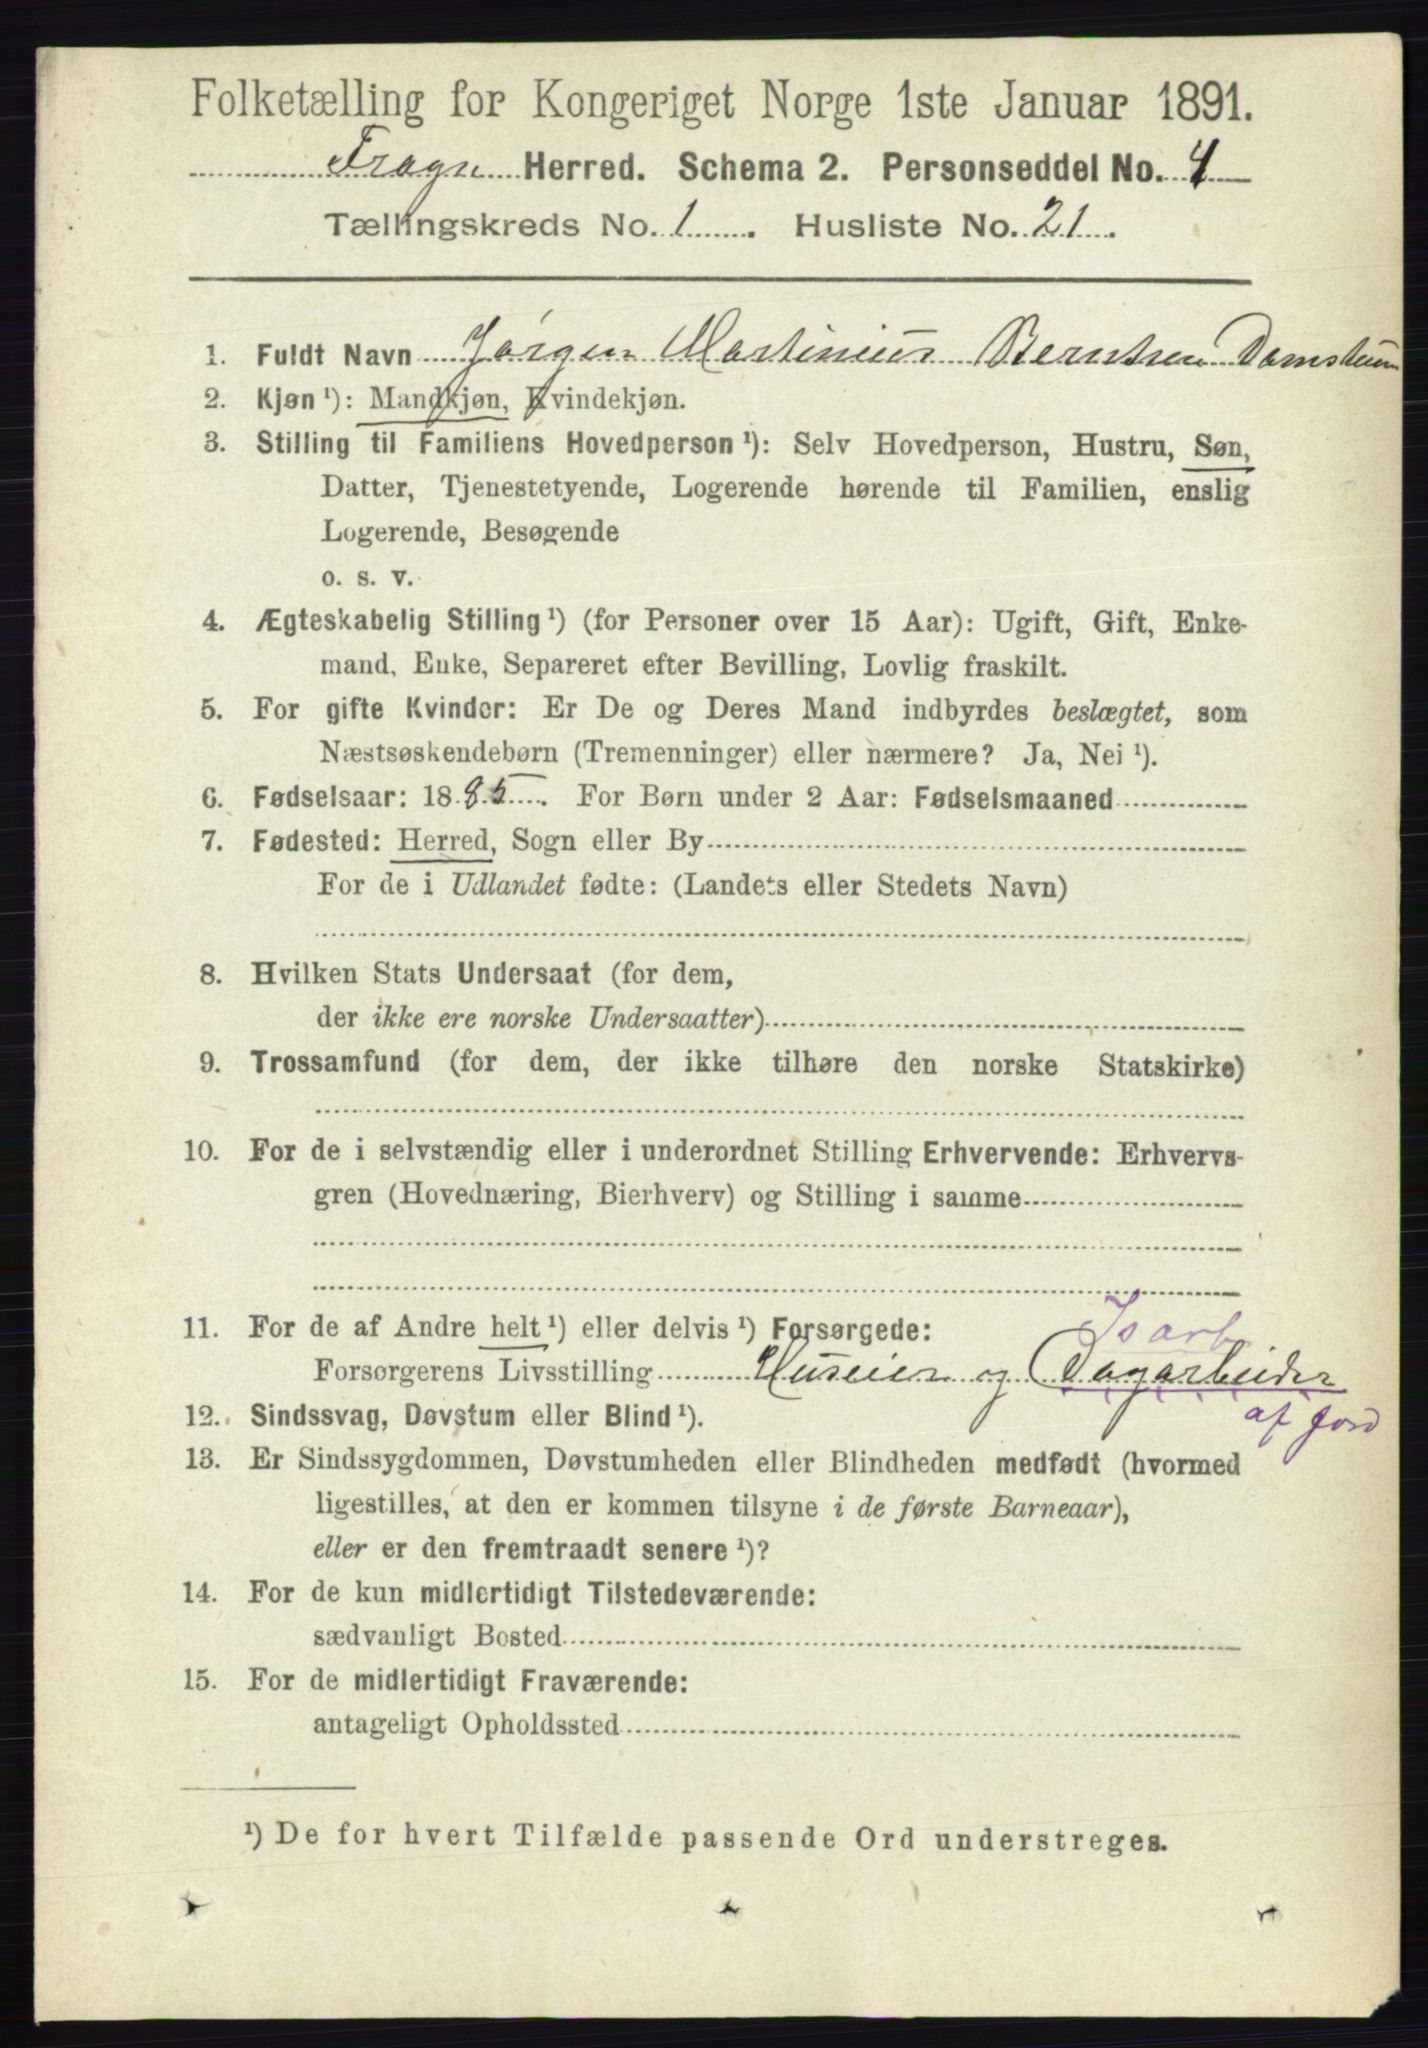 Folketælling for Kongeriget Norge 1ste Januar 1891.
Frogn Herred. Schema 2. Personseddel No. 4
Tællingskreds No. 1. Husliste No. 21.
1. Fuldt Navn Jørgen Martinius Berntsen
2. Kjøn ¹): Mandkjøn, Kvindekjøn.
3. Stilling til Familiens Hovedperson ¹): Selv Hovedperson, Hustru, Søn,
Datter, Tjenestetyende, Logerende hørende til Familien, enslig
Logerende, Besøgende
o. s. v.
4. Ægteskabelig Stilling ¹) (for Personer over 15 Aar): Ugift, Gift, Enke-
mand, Enke, Separeret efter Bevilling, Lovlig fraskilt.
5. For gifte Kvinder: Er De og Deres Mand indbyrdes beslægtet, som
Næstsøskendebørn (Tremenninger) eller nærmere? Ja, Nei ¹).
6. Fødselsaar: 1885. For Børn under 2 Aar: Fødselsmaaned
7. Fødested: Herred, Sogn eller By
For de i Udlandet fødte: (Landets eller Stedets Navn)
8. Hvilken Stats Undersaat (for dem,
der ikke ere norske Undersaatter)
9. Trossamfund (for dem, der ikke tilhøre den norske Statskirke)
10. For de i selvstændig eller i underordnet Stilling Erhvervende: Erhvervs-
gren (Hovednæring, Bierhverv) og Stilling i samme
11. For de af Andre helt ¹) eller delvis ¹) Forsørgede:
Isarb
Forsørgerens Livsstilling Huseier og Dagarbeider
af Jord
12. Sindssvag, Døvstum eller Blind ¹).
13. Er Sindssygdommen, Døvstumheden eller Blindheden medfødt (hvormed
ligestilles, at den er kommen tilsyne i de første Barneaar),
eller er den fremtraadt senere ¹)?
14. For de kun midlertidigt Tilstedeværende:
sædvanligt Bosted
15. For de midlertidigt Fraværende:
antageligt Opholdssted
¹) De for hvert Tilfælde passende Ord understreges.